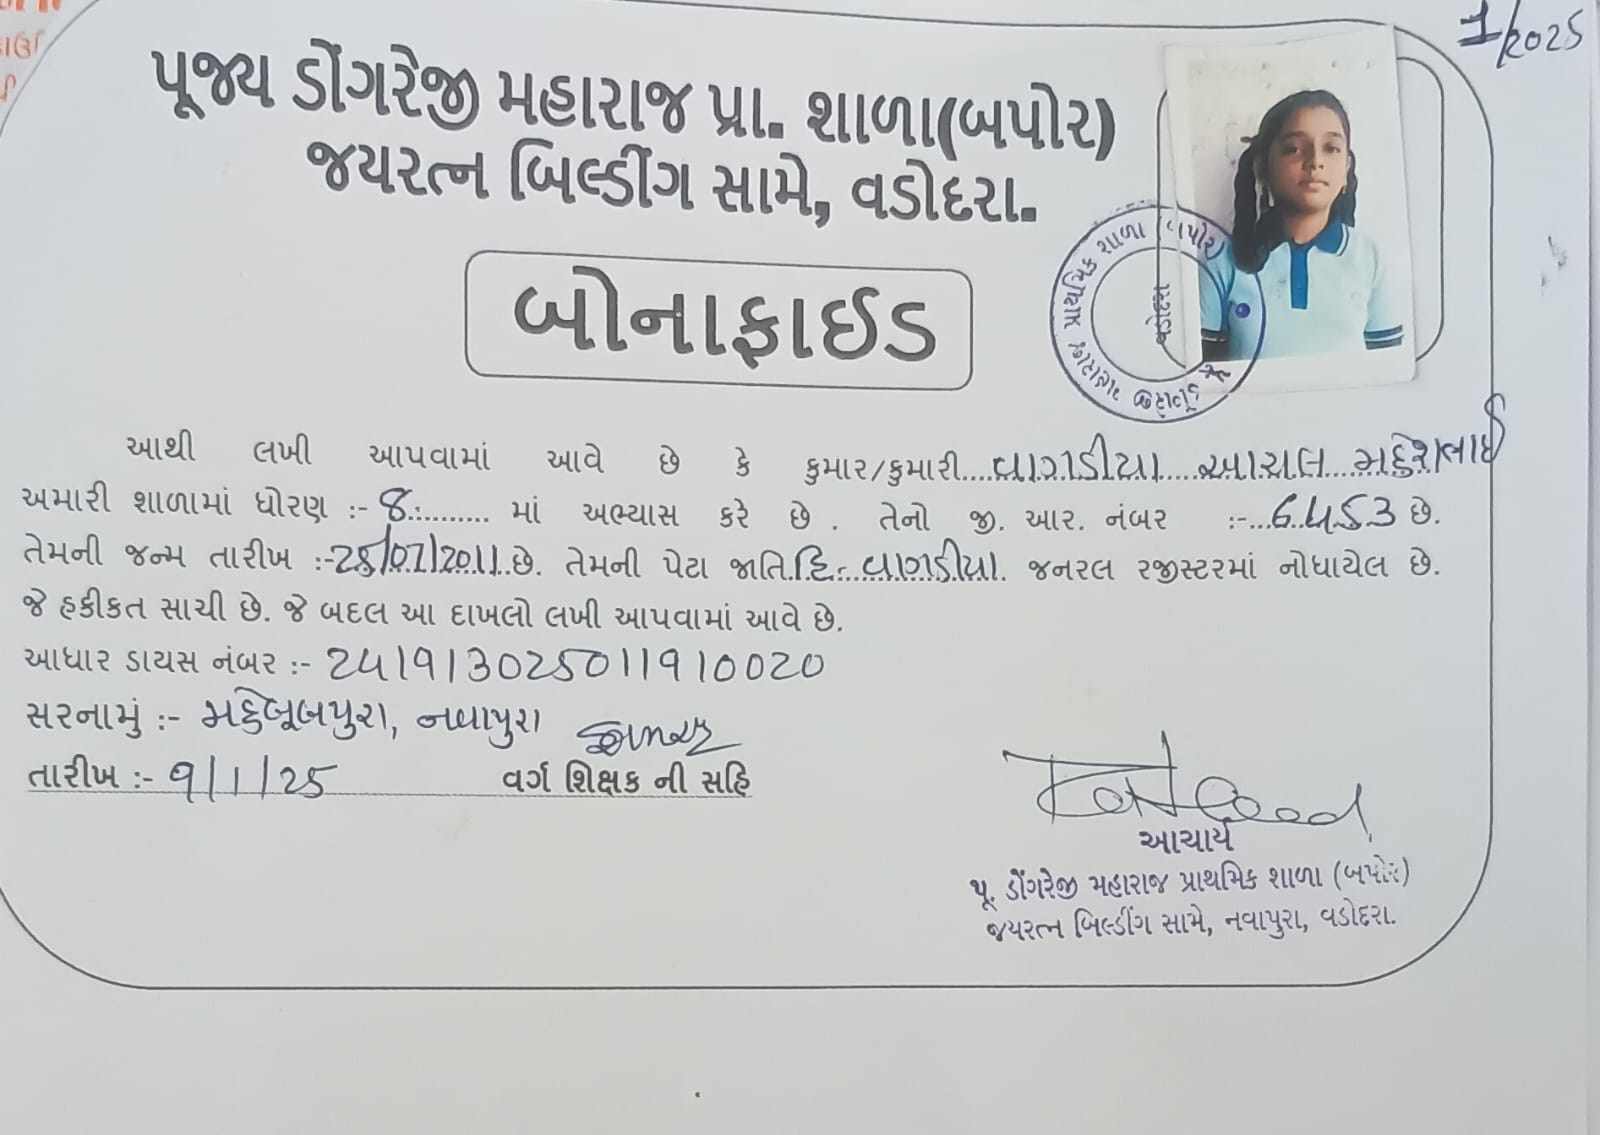 1/2025
પૂજ્ય ડોંગરેજી મહારાજ પ્રા. શાળા(બપોર)
જયરત્ન બિલ્ડીંગ સામે, વડોદરા.
બોનાફાઈડ
આથી લખી આપવામાં આવે છે કે કુમાર/કુમારી....વાગડીયા....આચલ....મહેશભાઈ
અમારી શાળામાં ધોરણ :- 8 ......... માં અભ્યાસ કરે છે . તેનો જી. આર. નંબર :-...6453 છે.
તેમની જન્મ તારીખ :-25/07/2011..છે. તેમની પેટા જાતિ.હિ.-વાગડીયા. જનરલ રજીસ્ટરમાં નોધાયેલ છે.
જે હકીકત સાચી છે. જે બદલ આ દાખલો લખી આપવામાં આવે છે.
આધાર ડાયસ નંબર :- 241913025011910020
સરનામું :- મહેબૂબપુરા, નવાપુરા
તારીખ :- 9/1/25 વર્ગ શિક્ષક ની સહિ
આચાર્ય
પૂ. ડોંગરેજી મહારાજ પ્રાથમિક શાળા (બપોર)
જયરત્ન બિલ્ડીંગ સામે, નવાપુરા, વડોદરા.